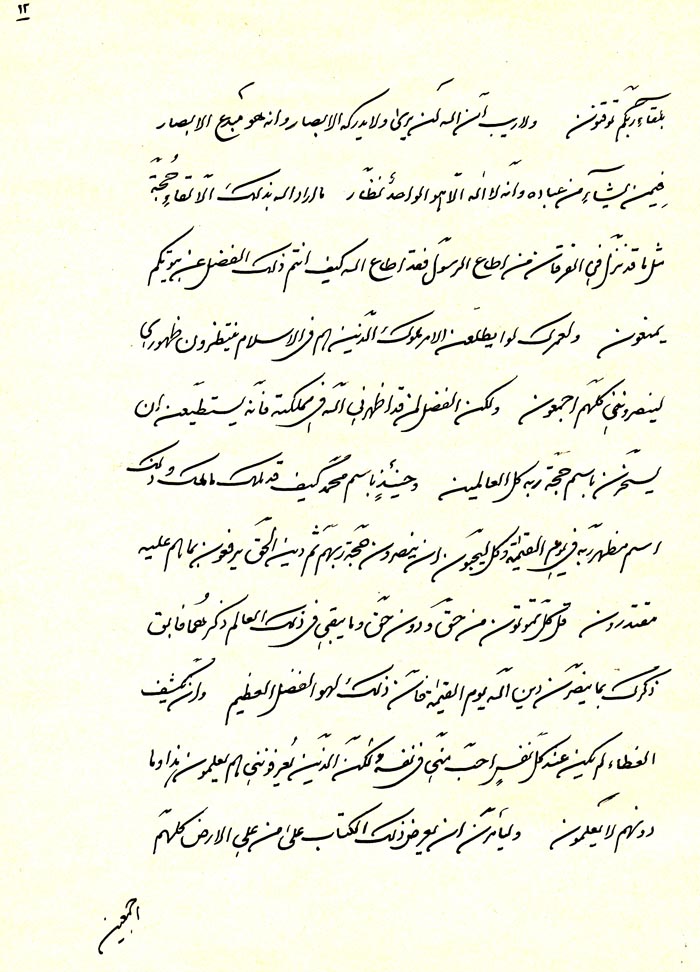 ١٢
بلقاء ربكم توقنون ولا ريب ان الله لن يرى ولا يدركه الابصار وانه لهو مبدع الابصار
فيمن يشاء من عباده وانه لا اله الا هو الواحد النظار ما اراد الله بذلك الا لقاء حجة
مثل ما قد نزل في الفرقان من اطاع الرسول فقد اطاع الله كيف انتم ذلك الفضل عن بيوتكم
يمنعون ولعمرك لو ايطلعن الامر ملوك الذينهم في الاسلام ينتظرون ظهوري
لينصرونني كلهم اجمعون ولكن الفضل لمن قد اظهرني الله في مملكته فانه يستطيعن ان
يسخرن باسم حجة ربه كل العالمين وحينئذ باسم محمد كيف قد ملك ما ملك ولك
اسم مظهر ربه في يوم القيمة وكل ليحبون ان ينصرون حجة ربهم ثم دين الحق يرفعون بما هم عليه
مقتدرون قل كل تموتون من حق ودون حق وما يبقى في ذلك العالم ذكرهما فابق
ذكرك بما ينصرن دين الله يوم القيمة فان ذلك لهو الفضل العظيم وان تكشف
الغطاء لم يكن عند كل نفس احب مني في نفسه ولكن الذين يعرفونني هم يعلمون هذا وما
دونهم لا يعلمون وليأمرن ان يعرض ذلك الكتاب على من على الارض كلهم
اجمعين